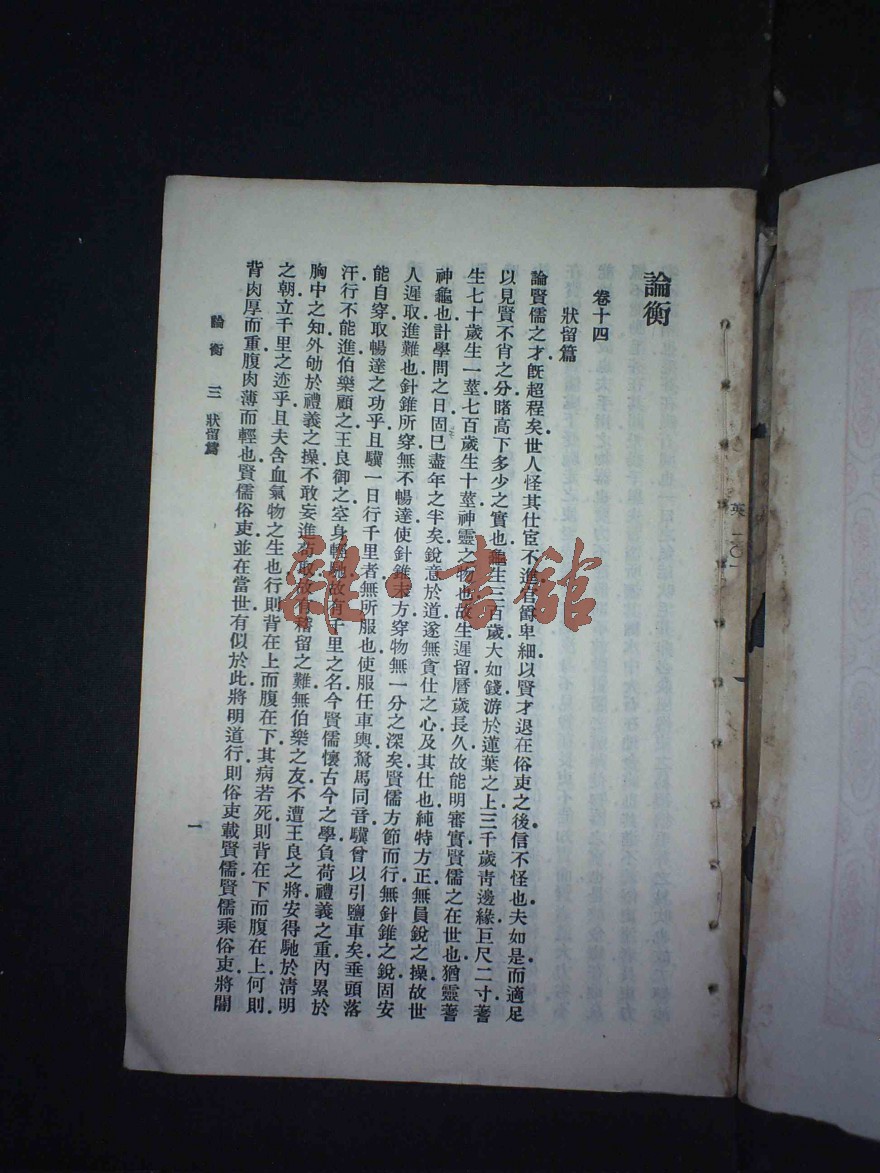 論衡
卷十四
狀留篇
論賢儒之才旣超程矣世人怪其仕宦不進官爵卑細以賢才退在俗吏之後信不怪也夫如是而適足
以見賢不肖之分睹高下多少之實也龜生三百歲大如錢游於蓮葉之上三千歲靑邊緣巨尺二寸蓍
生七十歲生一莖七百歲生十莖神靈之物也故生遲留曆歲長久故能明審實賢儒之在世也猶靈蓍
神龜也計學問之日固已盡年之半矣銳意於道遂無貪仕之心及其仕也純特方正無員銳之操故世
人遲取進難也針錐所穿無不暢達使針錐末方穿物無一分之深矣賢儒方節而行無針錐之銳固安
能自穿取暢達之功乎且驥一日行千里者無所服也使服任車輿駑馬同音驥曾以引鹽車矣垂頭落
汗行不能進伯樂顧之王良御之空身輕馳故有千里之名今賢儒懷古今之學負荷禮義之重內累於
胸中之知外劬於禮義之操不敢妄進苟取故有稽留之難無伯樂之友不遭王良之將安得馳於淸明
之朝立千里之迹乎且夫含血氣物之生也行則背在上而腹在下其病若死則背在下而腹在上何則
背肉厚而重腹肉薄而輕也賢儒俗吏並在當世有似於此將明道行則俗吏載賢儒賢儒乘俗吏將闇
論衡 三 狀留篇
一
英 一〇一
雜·書館